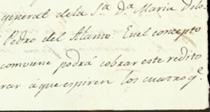 general dela S.ª D.ª Maria Dolo
Pedro del Alamo. En el concepto
comviene podrá cobrar este redito
rar aque espiren los cuatro q.e